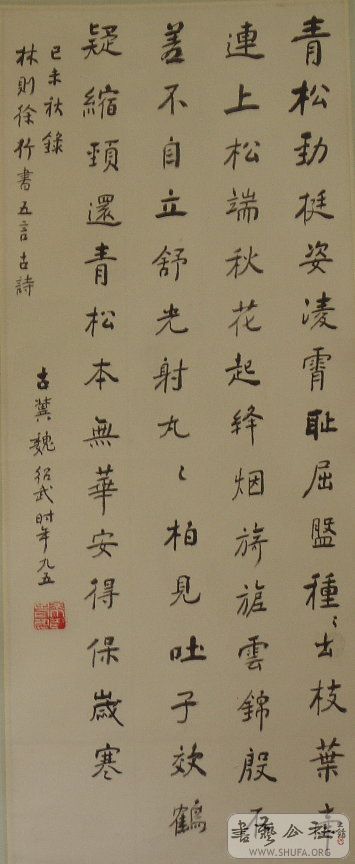 青松勁挺姿凌霄恥屈盤種〻出枝葉牽
連上松端秋花起絳烟旖旎雲錦殷不
羞不自立舒光射丸〻柏見吐子效鶴
疑縮頸還青松本無華安得保歲寒
己未秋錄
林則徐行書五言古詩
古冀魏紹武时年九五
書藝公社
WWW.SHUFA.ORG